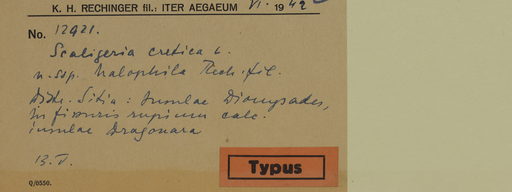 K. H. RECHINGER fil.: ITER AEGAEUM VI. 1942
No. 12921.
Scaligeria cretica
n. ssp. halophila Rech. fil.
Distr. Sitia: Insulae Dionysades,
In fissuris rupium calc.
insulae Dragonara
13. V.
Typus
Q/0550.